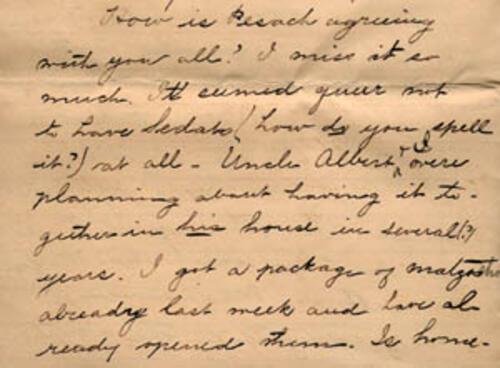 How is Pesach agreeing
with you all? I miss it so
much. It seemed queer not
to have Sedars (how do you spell
it?) at all - Uncle Albert + I were
planning about having it to-
gether in his house in several (?)
years. I got a package of matzoths
already last week and have al-
ready opened them. Is home-